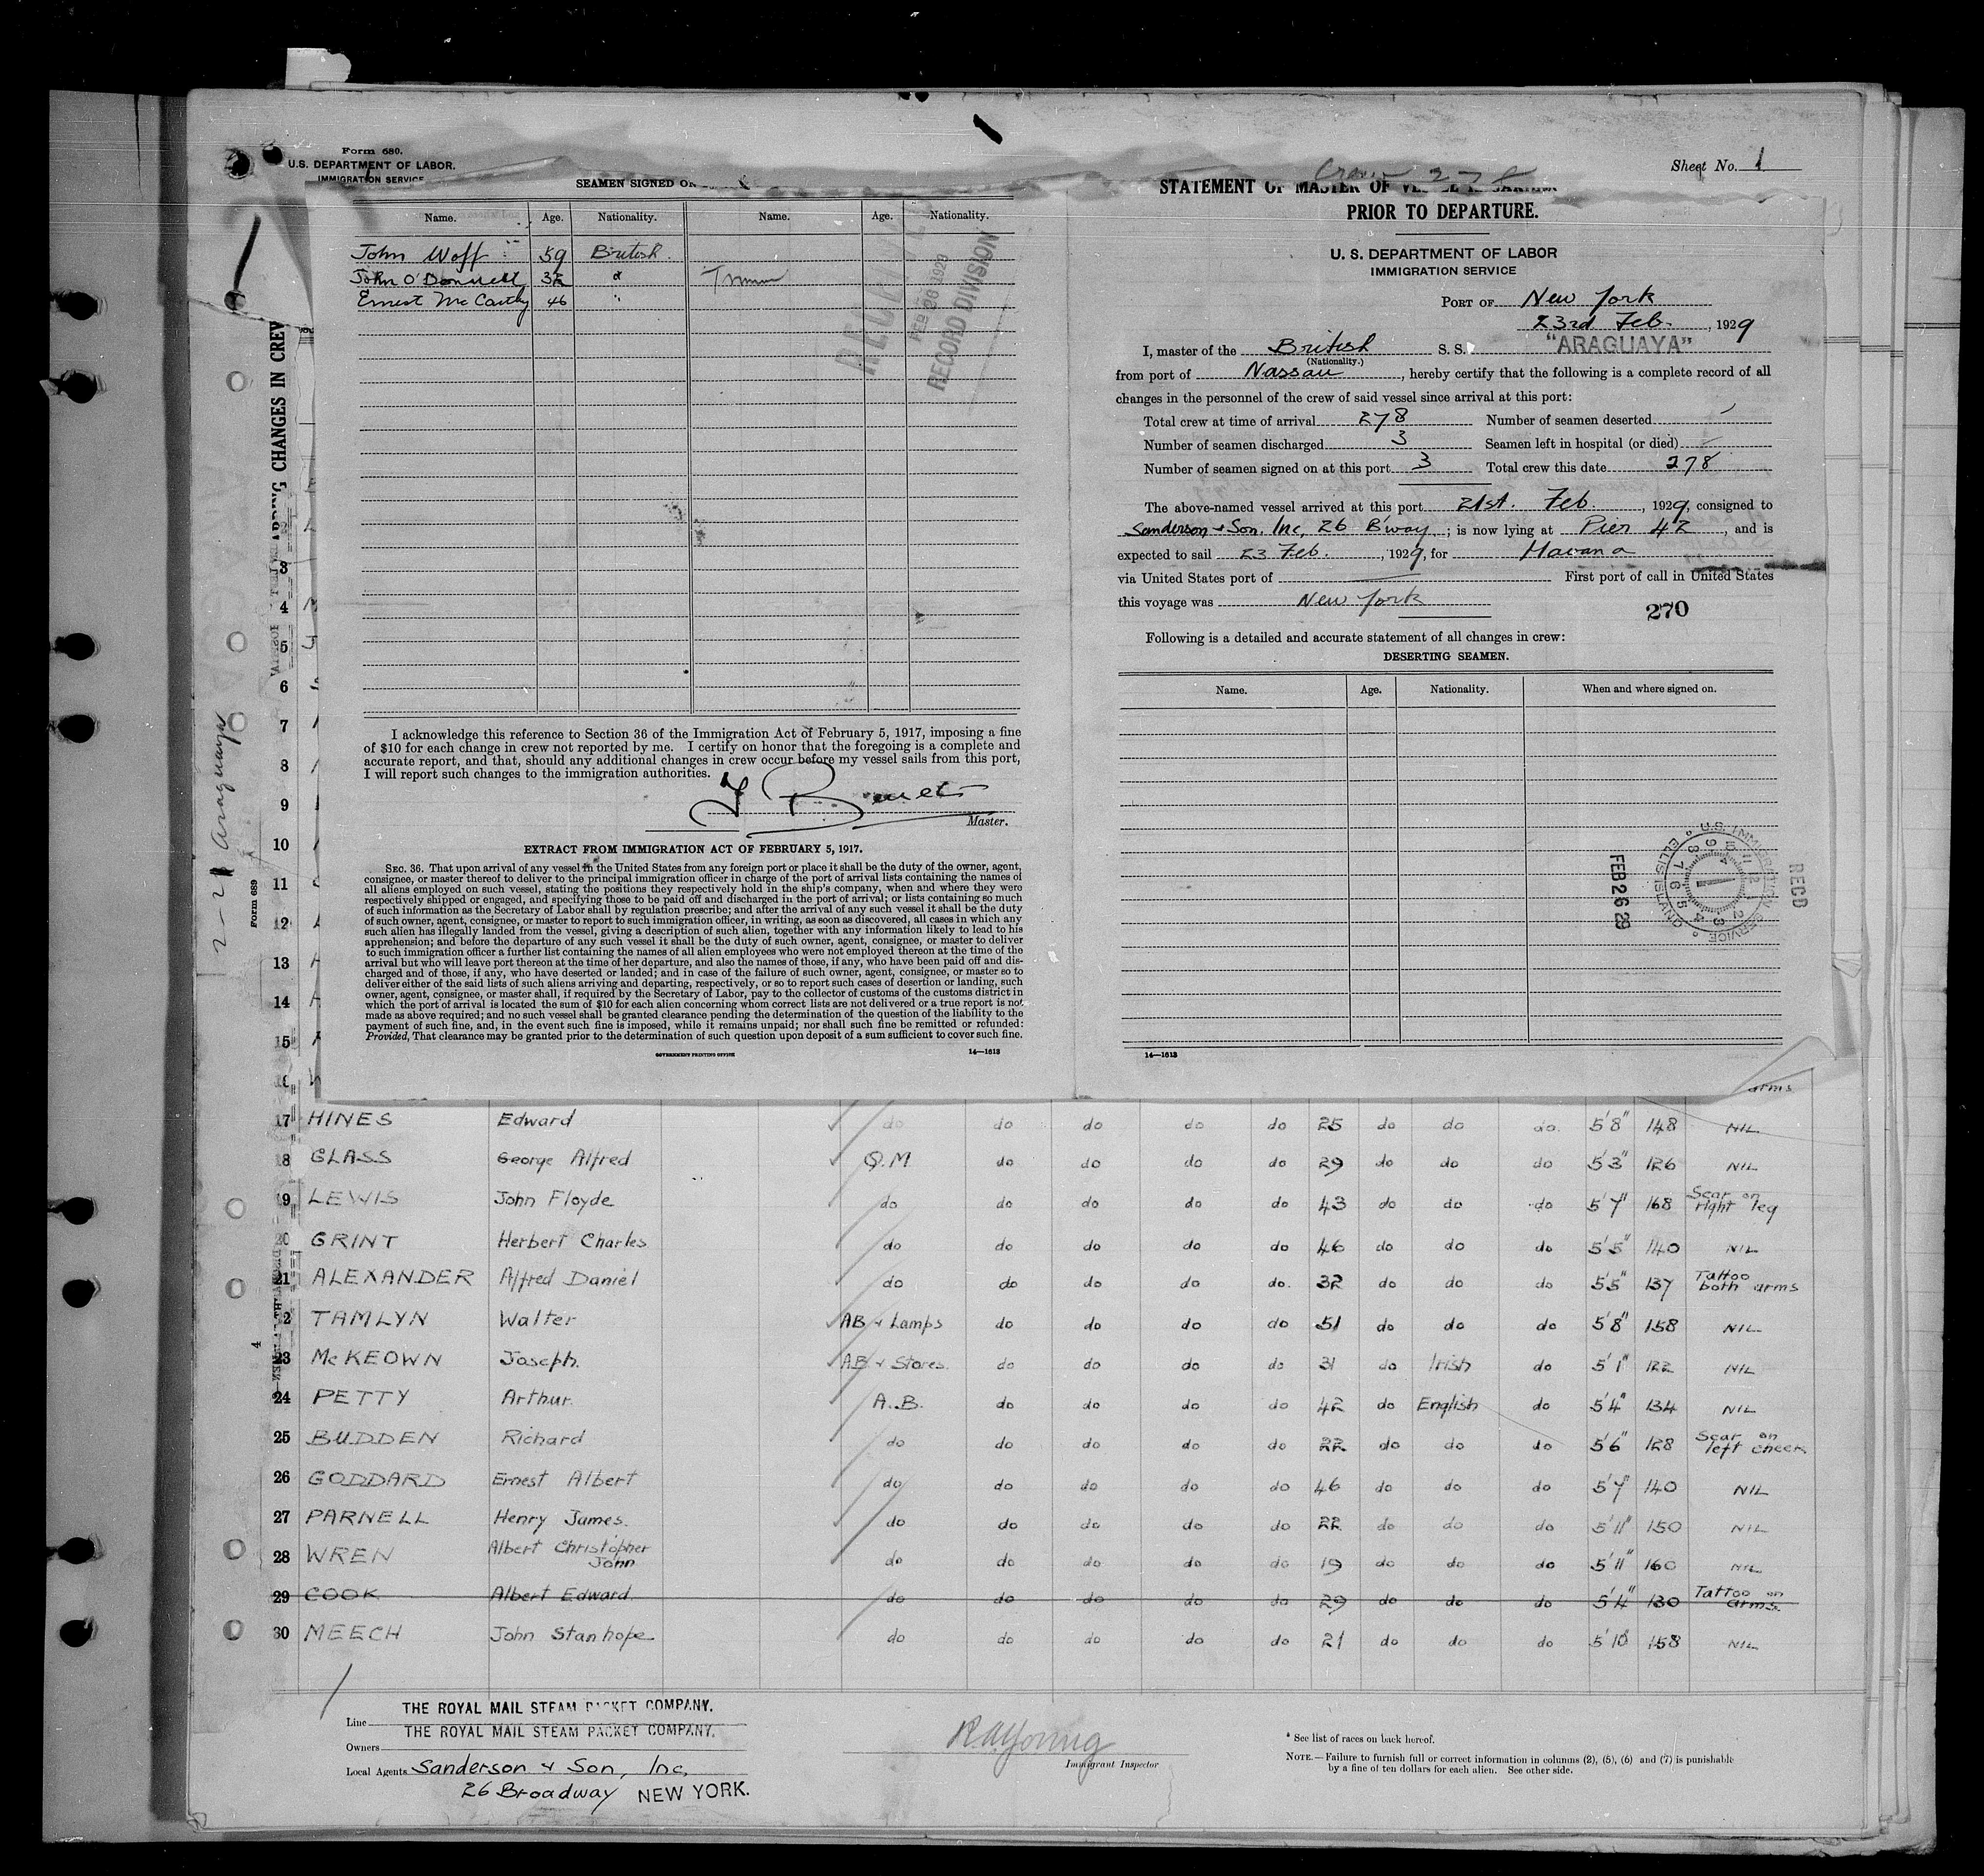 Form 680.
U.S. DEPARTMENT OF LABOR.
IMMIGRATION SERVICE
Sheet No. 1
Crew 278
SEAMEN SIGNED ON
Name. Age. Nationality. Name. Age. Nationality.
John Woff 59 British.
John O'Donnell 32 "
Ernest McCarthy 46 "
RECEIVED
FEB 26 1929
RECORD DIVISION
I acknowledge this reference to Section 36 of the Immigration Act of February 5, 1917, imposing a fine
of $10 for each change in crew not reported by me. I certify on honor that the foregoing is a complete and
accurate report, and that, should any additional changes in crew occur before my vessel sails from this port,
I will report such changes to the immigration authorities.
Master.
EXTRACT FROM IMMIGRATION ACT OF FEBRUARY 5, 1917.
SEC. 36. That upon arrival of any vessel in the United States from any foreign port or place it shall be the duty of the owner, agent,
consignee, or master thereof to deliver to the principal immigration officer in charge of the port of arrival lists containing the names of
all aliens employed on such vessel, stating the positions they respectively hold in the ship's company, when and where they were
respectively shipped or engaged, and specifying those to be paid off and discharged in the port of arrival; or lists containing so much
of such information as the Secretary of Labor shall by regulation prescribe; and after the arrival of any such vessel it shall be the duty
of such owner, agent, consignee, or master to report to such immigration officer, in writing, as soon as discovered, all cases in which any
such alien has illegally landed from the vessel, giving a description of such alien, together with any information likely to lead to his
apprehension; and before the departure of any such vessel it shall be the duty of such owner, agent, consignee, or master to deliver
to such immigration officer a further list containing the names of all alien employees who were not employed thereon at the time of the
arrival but who will leave port thereon at the time of her departure, and also the names of those, if any, who have been paid off and dis-
charged and of those, if any, who have deserted or landed; and in case of the failure of such owner, agent, consignee, or master so to
deliver either of the said lists of such aliens arriving and departing, respectively, or so to report such cases of desertion or landing, such
owner, agent, consignee, or master shall, if required by the Secretary of Labor, pay to the collector of customs of the customs district in
which the port of arrival is located the sum of $10 for each alien concerning whom correct lists are not delivered or a true report is not
made as above required; and no such vessel shall be granted clearance pending the determination of the question of the liability to the
payment of such fine, and, in the event such fine is imposed, while it remains unpaid; nor shall such fine be remitted or refunded:
Provided, That clearance may be granted prior to the determination of such question upon deposit of a sum sufficient to cover such fine.
GOVERNMENT PRINTING OFFICE 14—1613
STATEMENT OF MASTER OF VESSEL
PRIOR TO DEPARTURE.
U. S. DEPARTMENT OF LABOR
IMMIGRATION SERVICE
PORT OF New York
23rd Feb. , 1929
I, master of the British S. S. "ARAGUAYA"
(Nationality.)
from port of Nassau , hereby certify that the following is a complete record of all
changes in the personnel of the crew of said vessel since arrival at this port:
Total crew at time of arrival 278 Number of seamen deserted
Number of seamen discharged 3 Seamen left in hospital (or died)
Number of seamen signed on at this port 3 Total crew this date 278
The above-named vessel arrived at this port 21st. Feb. , 1929, consigned to
Sanderson & Son. Inc, 26 B'way ; is now lying at Pier 42 , and is
expected to sail 23 Feb. , 1929, for Havana
via United States port of First port of call in United States
this voyage was New York
270
Following is a detailed and accurate statement of all changes in crew:
DESERTING SEAMEN.
Name. Age. Nationality. When and where signed on.
U.S. IMMIGRATION SERVICE ELLIS ISLAND
FEB 26 29
REC'D
14—1613
CHANGES IN CREW
2-21 Araguaya
Form 689
4
3
4
5
6
7
8
9
10
11
12
13
14
15
arms
17 HINES Edward do do do do do 25 do do do. 5'8" 148 NIL
18 GLASS George Alfred Q.M do do do do 29 do do do 5'3" 126 NIL
19 LEWIS John Floyde do do do do do 43 do do do 5'7" 168 Scar on right leg
20 GRINT Herbert Charles do do do do do 46 do do do 5'5" 140 NIL
21 ALEXANDER Alfred Daniel do do do do do. 32 do do do 5'5" 137 Tattoo both arms
22 TAMLYN Walter AB & Lamps do do do do 51 do do do 5'8" 158 NIL
23 McKEOWN Joseph. AB & Stores. do do do do 31 do Irish do 5'1" 122 NIL
24 PETTY Arthur. A.B. do do do do 42 do English do 5'4" 134 NIL
25 BUDDEN Richard do do do do do 22 do do do 5'6" 128 Scar on left cheek
26 GODDARD Ernest Albert do do do do do 46 do do do 5'7" 140 NIL
27 PARNELL Henry James. do do do do do 22 do do do 5'11" 150 NIL
28 WREN Albert Christopher John do do do do do 19 do do do 5'11" 160 NIL
29 COOK Albert Edward do do do do do 29 do do do 5'4" 130 Tattoo on arms.
30 MEECH John Stanhope do do do do do 21 do do do 5'10" 158 NIL
Line THE ROYAL MAIL STEAM PACKET COMPANY.
Owners THE ROYAL MAIL STEAM PACKET COMPANY.
Local Agents Sanderson & Son, Inc,
26 Broadway NEW YORK.
R.A. Young
Immigrant Inspector
* See list of races on back hereof.
NOTE.—Failure to furnish full or correct information in columns (2), (5), (6) and (7) is punishable
by a fine of ten dollars for each alien. See other side.